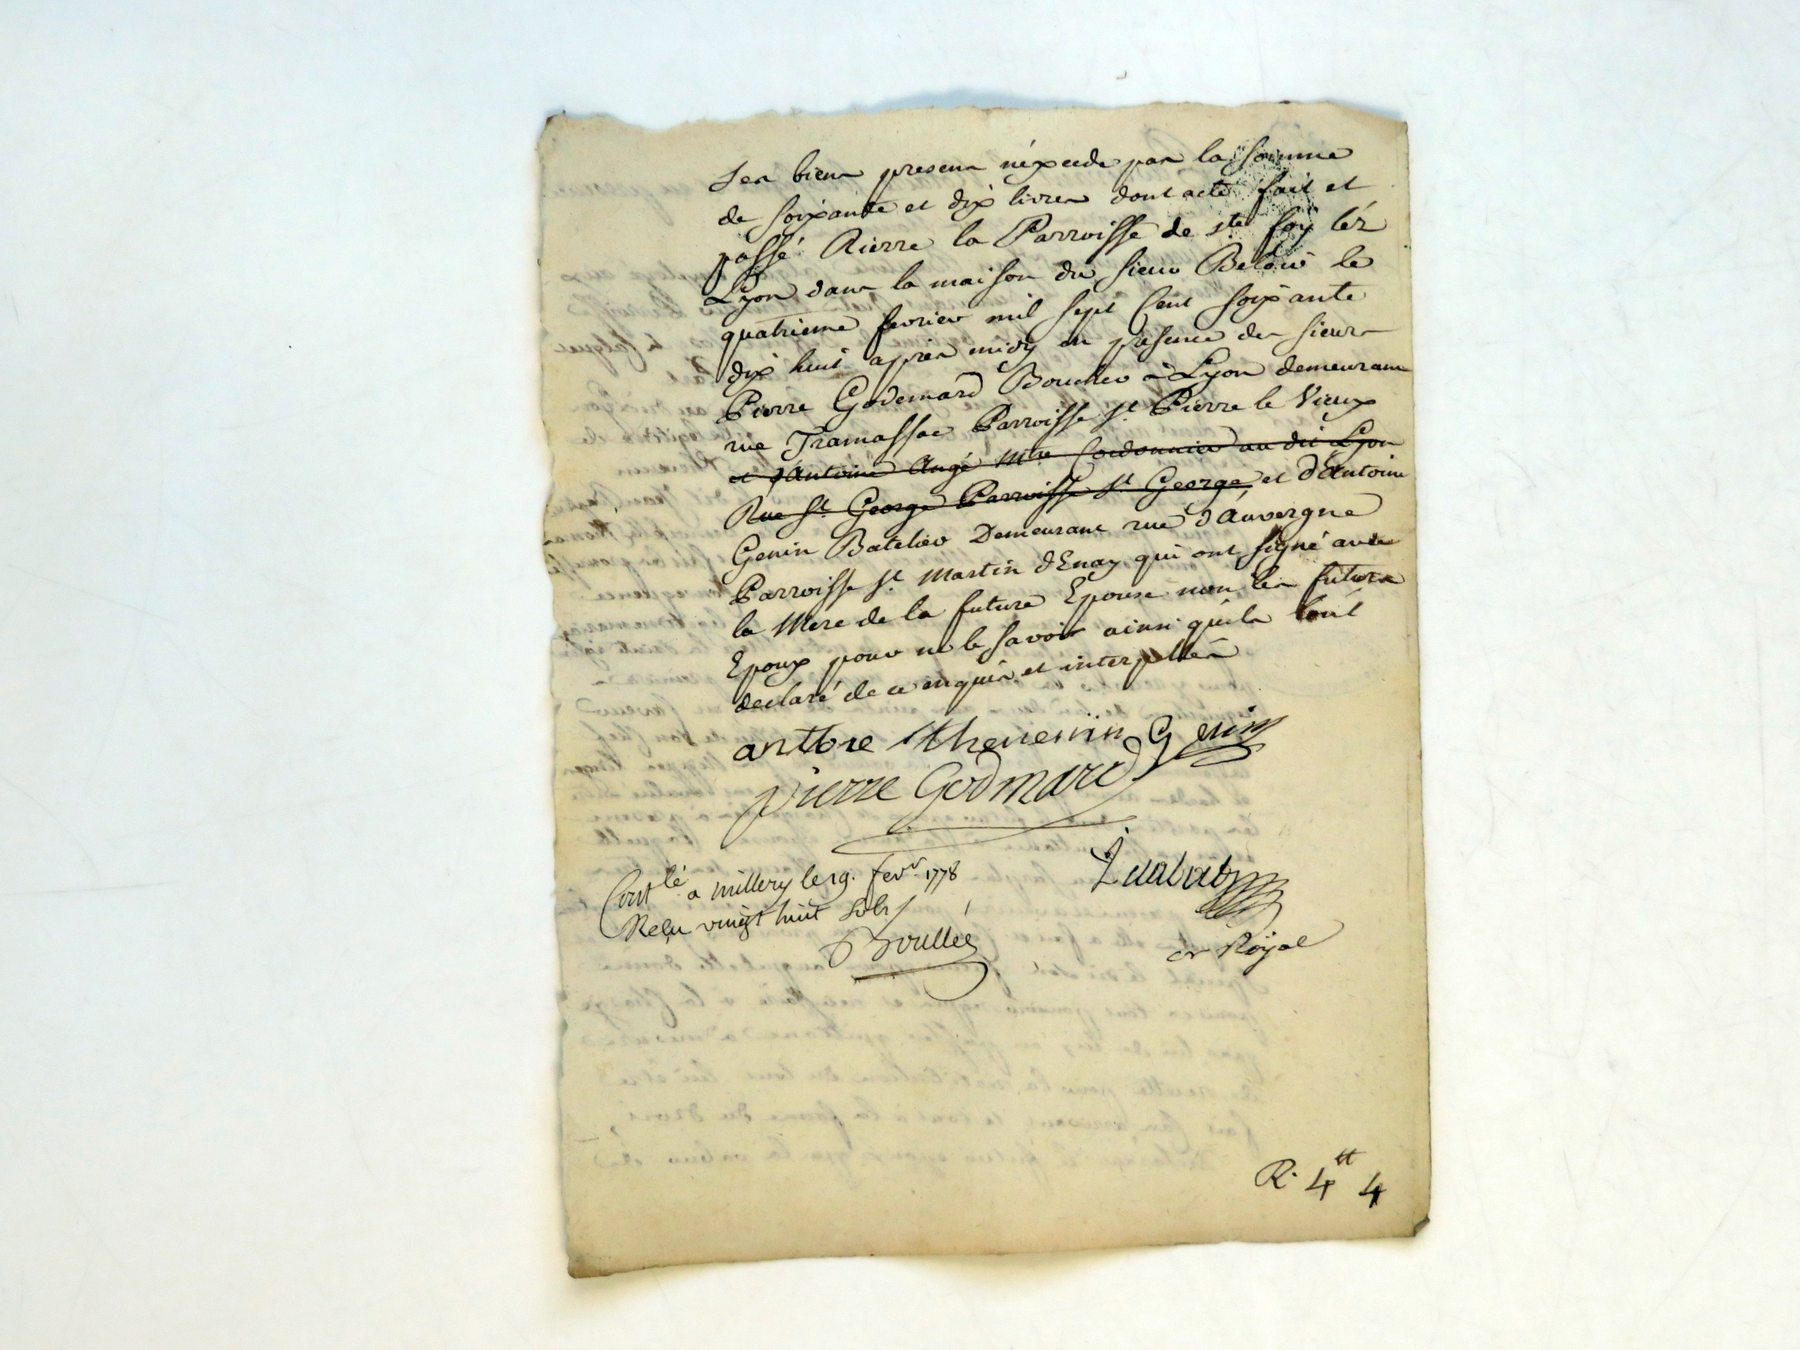 ses biens presens n'éxcede pas la somme
de soixante et dix livres dont acte fait et
passé Riere la Parroisse de ste foy léz
Lyon dans la maison du sieur Beloüs le
quatrieme fevrier mil sept Cent soixante
dix huit après midy en présence des sieurs
Pierre Godemard Boucher à Lyon demeurant
rue Tramassac Parroisse st Pierre le Vieux
et d'Antoine Augé Mtre Cordonnier au dit Lyon
Rue st George Parroisse st George et d'Antoine
Genin Batelier Demeurant rue d'Auvergne
Parroisse st Martin d'Enay qui ont signé avec
la Mere de la future Epouse non les futurs
Epoux pour ne le savoir ainsi qu'ils l'ont
declaré de ce enquis et interpellés
antbre thevenin Genin
pierre Godmard
Contlé a millery le 19. fevr. 1778
Reçu vingt huit sols
Boullée
nre Royal
R. 4tt 4